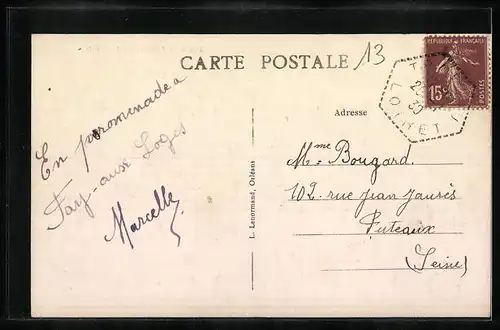 CARTE POSTALE
13
RÉPUBLIQUE FRANÇAISE
15c
POSTES
LOIRET
30
En promenade a
Fay-aux Loges
Marcelle
L. Lenormand, Orléans
Adresse
Mme Bougard.
102. rue Jean Jaurès
Puteaux
(Seine)